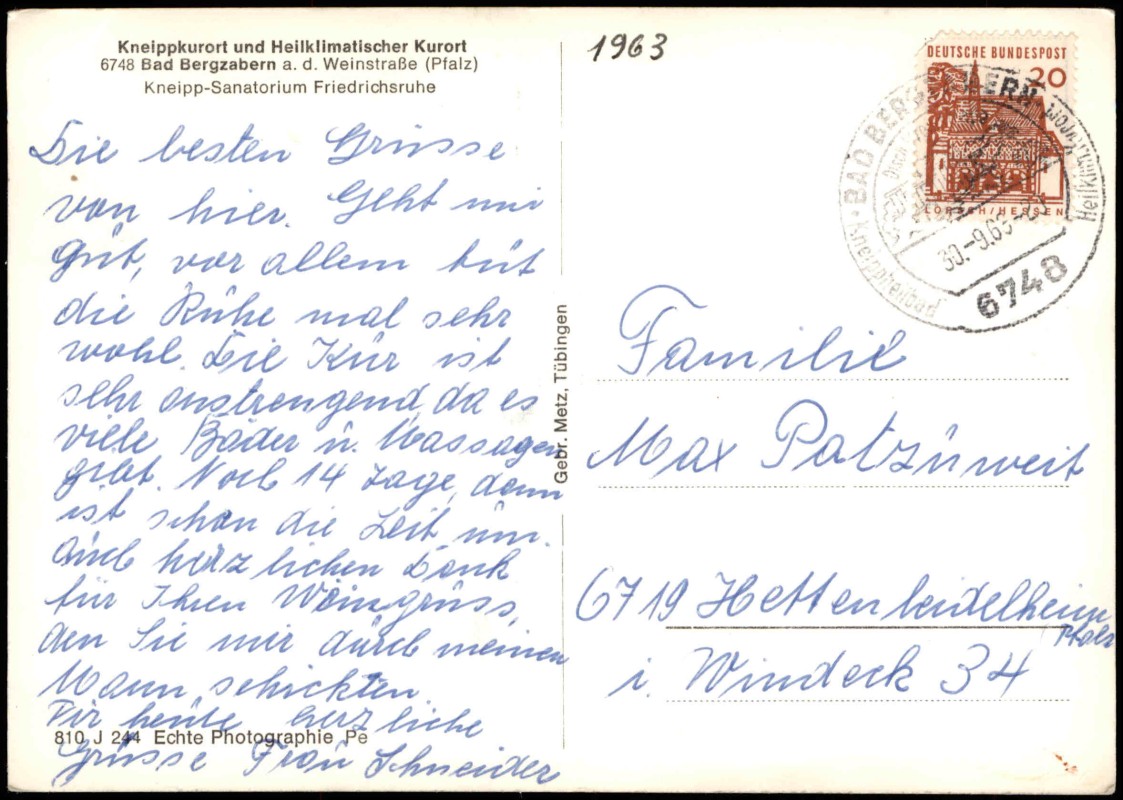 Kneippkurort und Heilklimatischer Kurort
6748 Bad Bergzabern a. d. Weinstraße (Pfalz)
Kneipp-Sanatorium Friedrichsruhe
Die besten Grüsse
von hier. Geht mir
gut, vor allem tut
die Ruhe mal sehr
wohl. Die Kur ist
sehr anstrengend, da es
viele Bäder u. Massagen
gibt. Noch 14 Tage, dann
ist schon die Zeit um.
Auch herzlichen Dank
für Ihren Weingruss,
den Sie mir durch meinen
Mann schickten.
Für heute herzliche
Grüsse Frau Schneider
810 J 244 Echte Photographie Pe
Gebr. Metz, Tübingen
1963
DEUTSCHE BUNDESPOST
20
LORSCH/HESSEN
BAD BERGZABERN
Kneippheilbad
Heilklimat. Kurort
30.-9.65
6748
Familie
Max Patzuweit
6719 Hettenleidelheim
Pfalz
i. Windeck 34